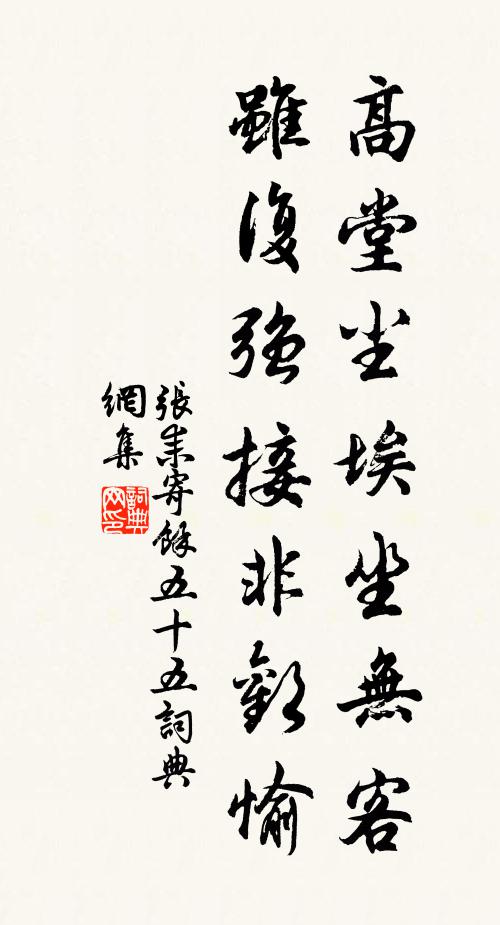 高堂尘埃坐無客
雖復強接非歡愉
張耒寄餘五十五詞典
網集
詞典
网印